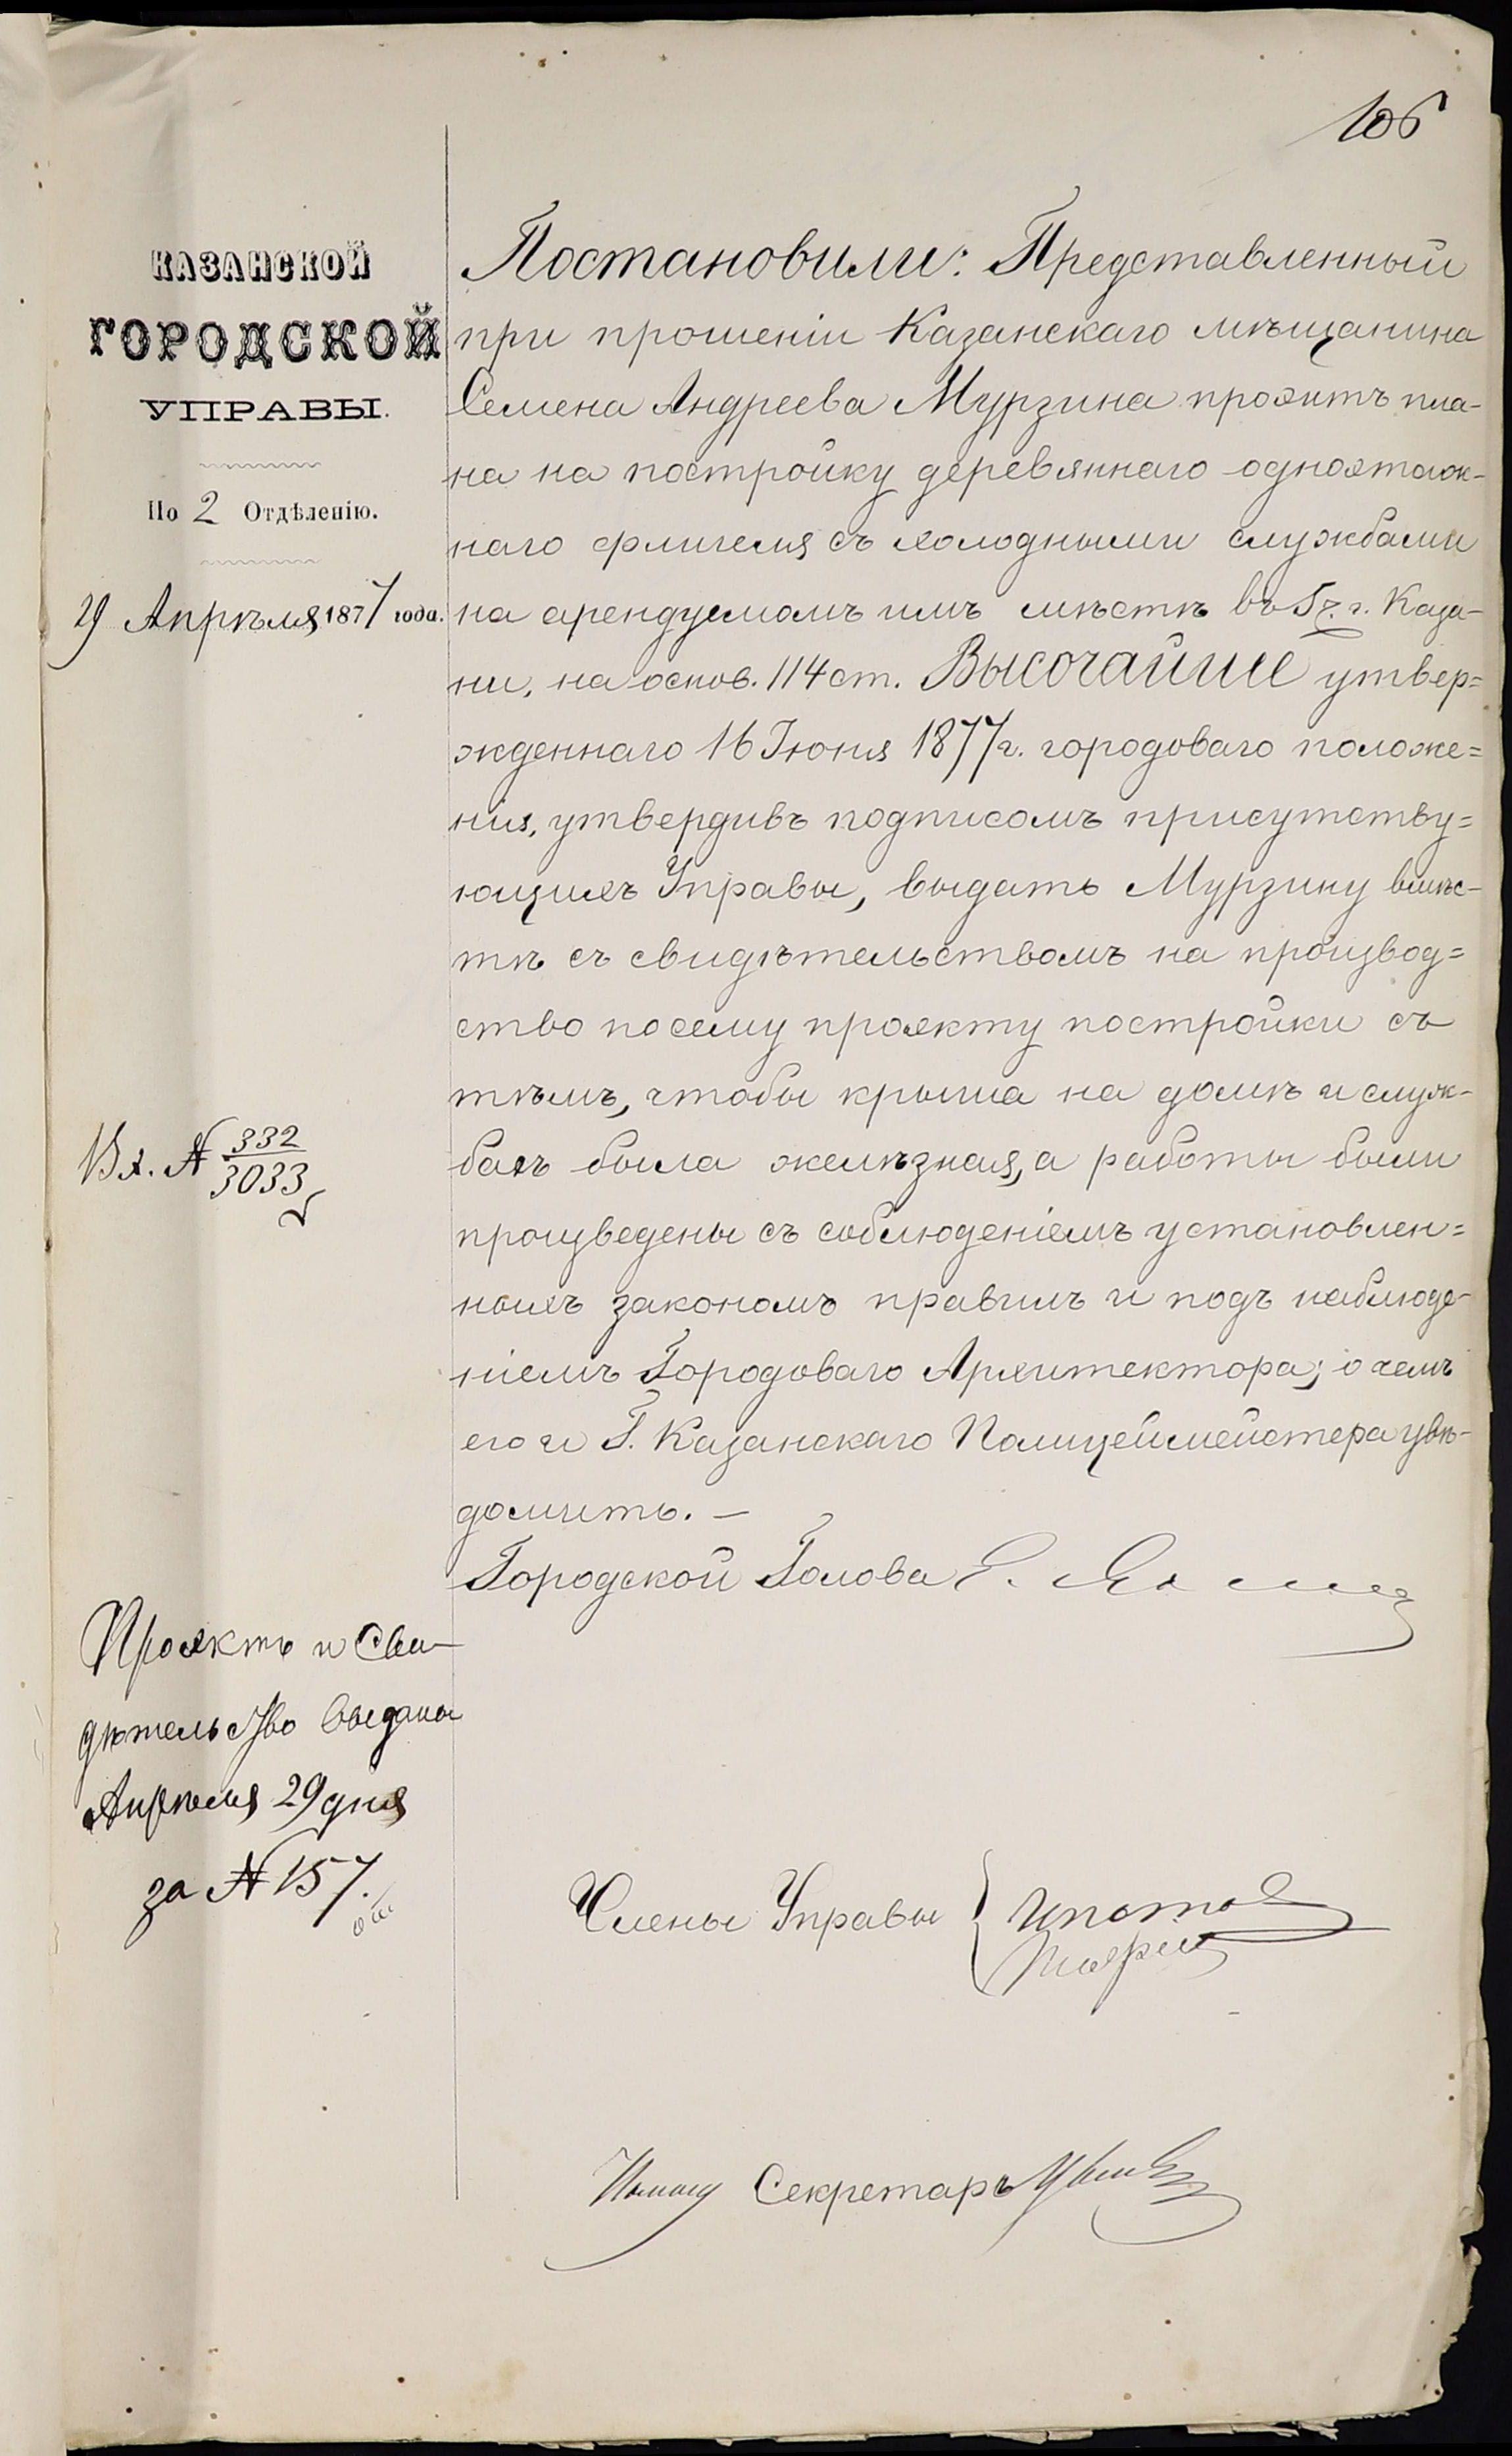 106
КАЗАНСКОЙ
ГОРОДСКОЙ
УПРАВЫ.
По 2 Отдѣленію.
29 Апрѣля 1877 года.
Постановили: Представленный
при прошеніи Казанскаго мѣщанина
Семена Андреева Мурзина проэктъ пла-
на на постройку деревяннаго одноэтаж-
наго флигеля съ холодными службами
на арендуемомъ имъ мѣстѣ въ 5 ч. г. Каза-
ни, на основ. 114 ст. Высочайше утвер=
жденнаго 16 Іюня 1877 г. городоваго положе=
нія, утвердивъ подписомъ присутству=
ющихъ Управы, выдать Мурзину вмѣс-
тѣ съ свидѣтельствомъ на производ=
ство по сему проэкту постройки съ
тѣмъ, чтобы крыша на домѣ и служ-
бахъ была желѣзная, а работы были
произведены съ соблюденіемъ установлен=
ныхъ закономъ правилъ и подъ наблюде-
ніемъ Городоваго Архитектора; о чемъ
его и Г. Казанскаго Полицеймейстера увѣ-
домить. –
Городской Голова
Вх. № 332
3033
Проэктъ и Сви-
дѣтельство выданы
Апрѣля 29 дня
за № 157.
Члены Управы
Секретарь